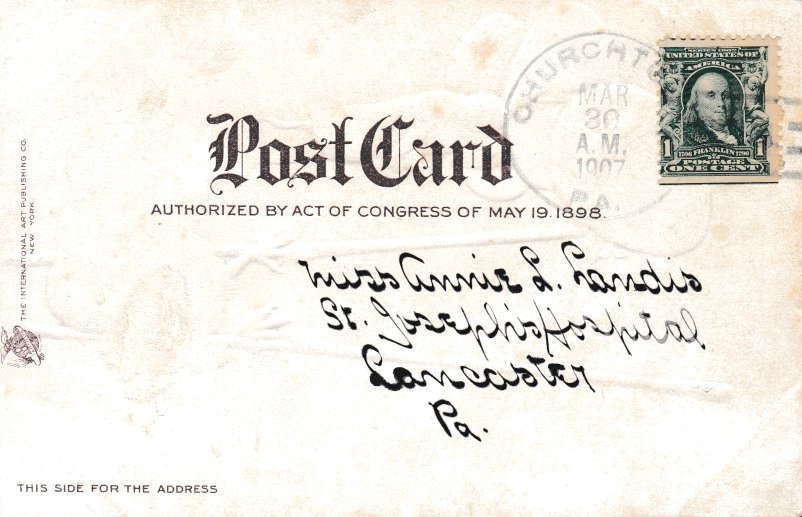 THE INTERNATIONAL ART PUBLISHING CO.
NEW YORK.
CHURCHT
MAR
30
A.M.
1907
PA.
SERIES 1902
UNITED STATES OF
AMERICA
1 1
1706 FRANKLIN 1790
POSTAGE
ONE CENT
Post Card
AUTHORIZED BY ACT OF CONGRESS OF MAY 19.1898.
Miss Annie L. Landis
St. Joseph's Hospital
Lancaster
Pa.
THIS SIDE FOR THE ADDRESS